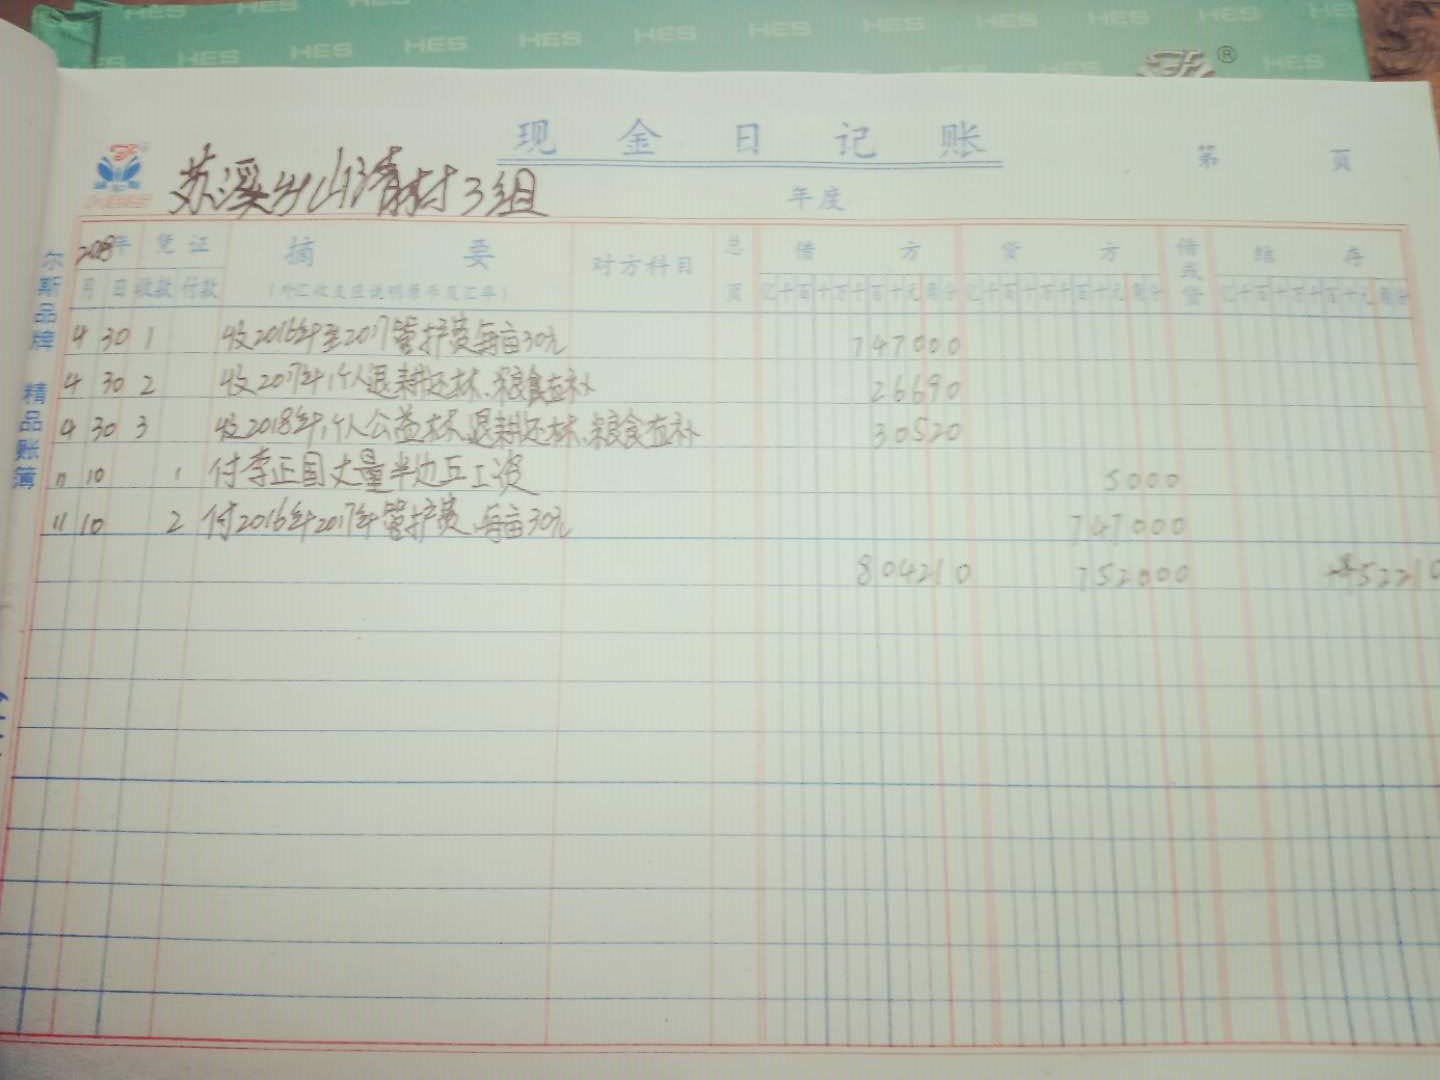 HES HES HES HES HES HES HES HES HES HES HES HES
HES HES HES
®
现金日记账
第 页
苏溪出山湾村3组
年度
尔斯品牌 精品账簿
2018年 凭证 摘要 对方科目 总页 借方 贷方 借或贷 结存
月 日 收款 付款 (外汇收支应说明原币及汇率) 亿千百十万千百十元角分 亿千百十万千百十元角分 亿千百十万千百十元角分
4 30 1 收2016年至2017管护费每亩30元 747000
4 30 2 收2017年个人退耕还林、粮食直补 26690
4 30 3 收2018年个人公益林、退耕还林、粮食直补 30520
11 10 1 付李正国丈量半边丘工资 5000
11 10 2 付2016年2017年管护费、每亩30元 747000
804210 752000 52210